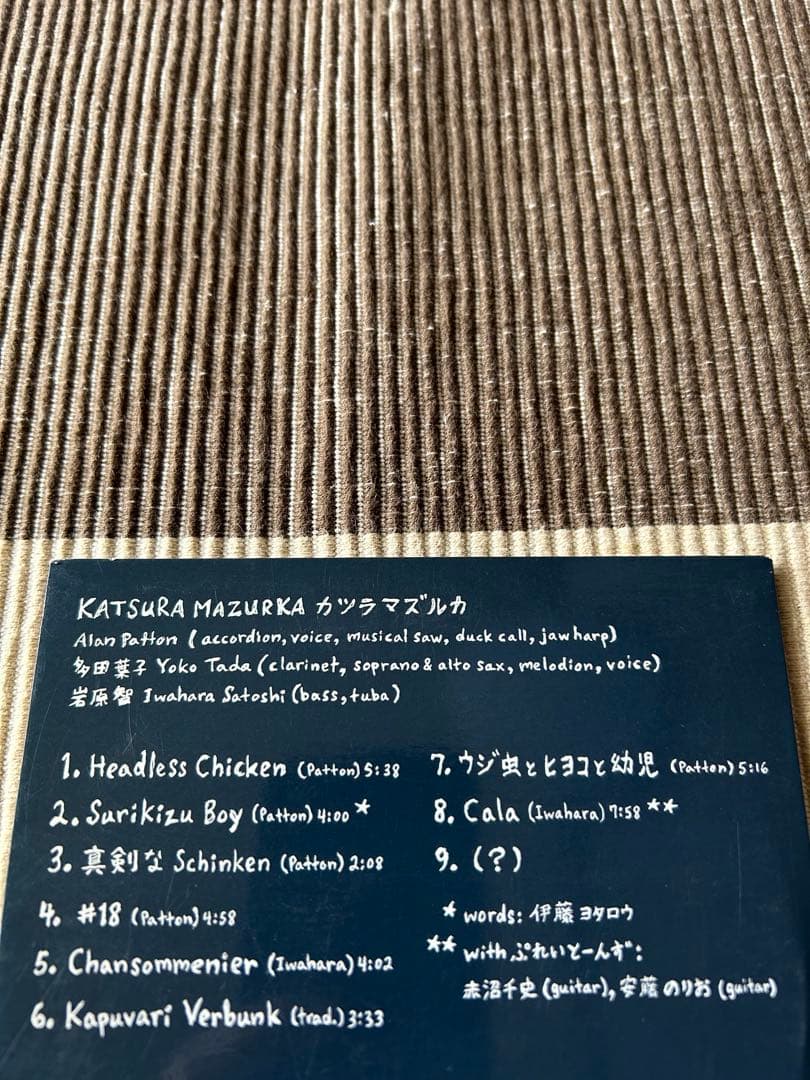 KATSURA MAZURKA カツラマズルカ
Alan Patton (accordion, voice, musical saw, duck call, jawharp)
多田葉子 Yoko Tada (clarinet, soprano & alto sax, melodion, voice)
岩原智 Iwahara Satoshi (bass, tuba)
1. Headless Chicken (Patton) 5:38
2. Surikizu Boy (Patton) 4:00 *
3. 真剣な Schinken (Patton) 2:08
4. #18 (Patton) 4:58
5. Chansommenier (Iwahara) 4:02
6. Kapuvari Verbunk (trad.) 3:33
7. ウジ虫とヒヨコと幼児 (Patton) 5:16
8. Cala (Iwahara) 7:58 **
9. (?)
* words: 伊藤ヨタロウ
** with ぷれいとーんず:
赤沼千史 (guitar), 安藤のりお (guitar)